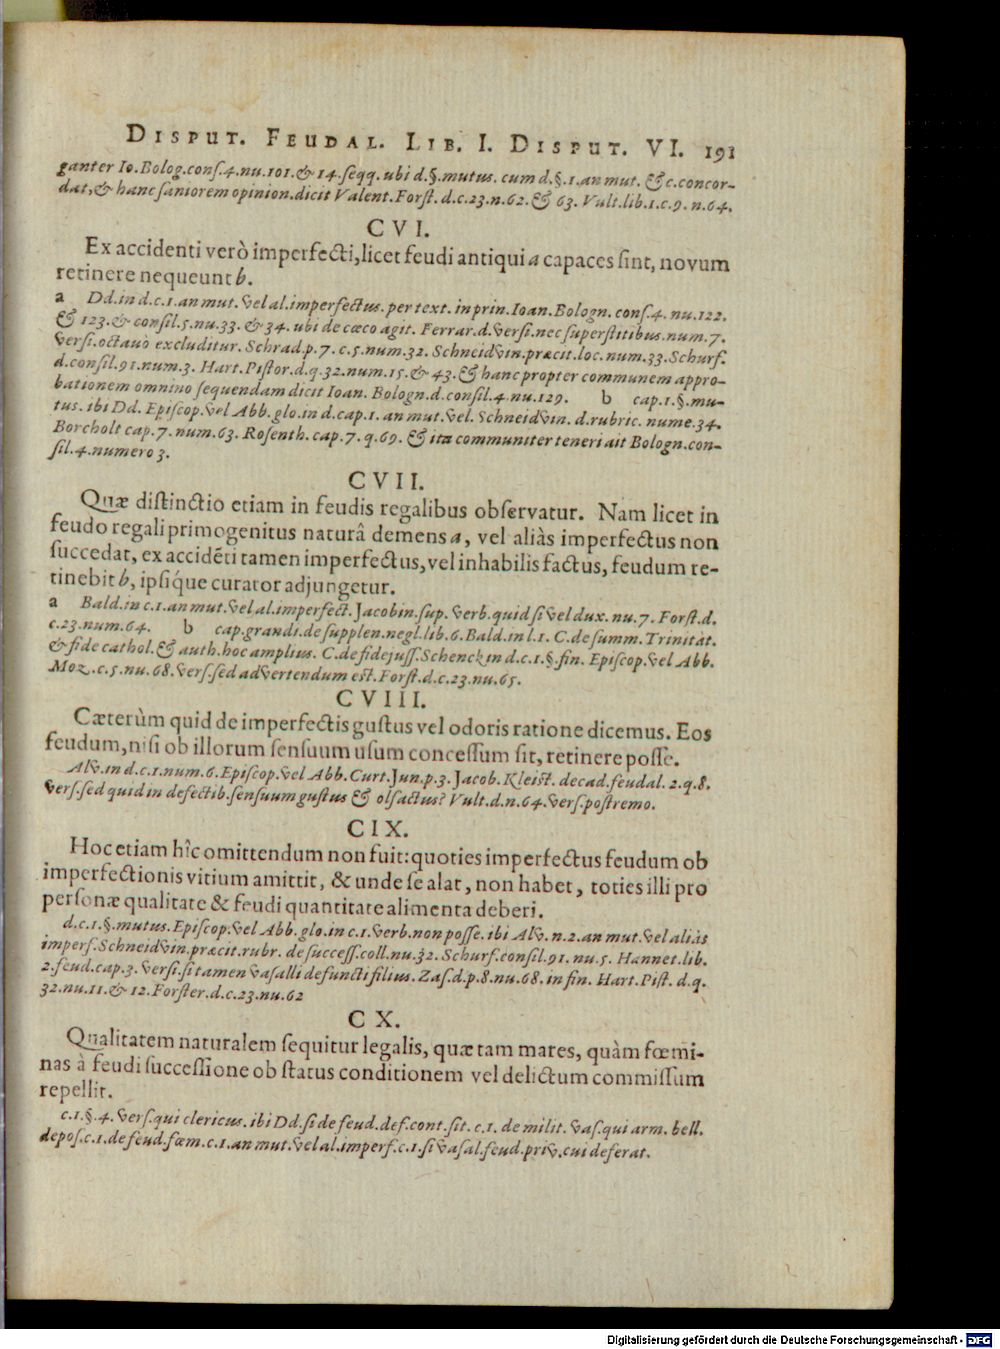 DISPUT. FEUDAL. LIB. I. DISPUT. VI. 191
ganter Io. Bolog. conſ. 4. nu. 101. & 14. ſeqq. ubi d. §. mutus. cum d. §. 1. an mut. & c. concor-
dat, & hanc ſaniorem opinion. dicit Valent. Forſt. d. c. 23. n. 62. & 63. Vult. lib. 1. c. 9. n. 64.
CVI.
Ex accidenti verò imperfecti, licet feudi antiqui a capaces ſint, novum
retinere nequeunt b.
a Dd. in d. c. 1. an mut. vel al. imperfectus. per text. in prin. Ioan. Bologn. conſ. 4. nu. 122.
& 123. & conſil. 5. nu. 33. & 34. ubi de cæco agit. Ferrar. d. verſi. nec ſuperſtitibus. num. 7.
verſi. octavo excluditur. Schrad. p. 7. c. 5. num. 32. Schneidvin. præcit. loc. num. 33. Schurf.
d. conſil. 91. num. 3. Hart. Piſtor. d. q. 32. num. 15. & 43. & hanc propter communem appro-
bationem omnino ſequendam dicit Ioan. Bologn. d. conſil. 4. nu. 129. b cap. 1. §. mu-
tus. ibi Dd. Epiſcop. vel Abb. glo. in d. cap. 1. an mut. vel. Schneidvin. d. rubric. nume. 34.
Borcholt cap. 7. num. 63. Roſenth. cap. 7. q. 69. & ita communiter teneri ait Bologn. con-
ſil. 4. numero 3.
CVII.
Quæ diſtinctio etiam in feudis regalibus obſervatur. Nam licet in
feudo regali primogenitus naturâ demens a, vel aliàs imperfectus non
ſuccedat, ex accidẽti tamen imperfectus, vel inhabilis factus, feudum re-
tinebit b, ipſiq́ue curator adjungetur.
a Bald. in c. 1. an mut. vel al. imperfect. Jacobin. ſup. verb. quid ſi vel dux. nu. 7. Forſt. d.
c. 23. num. 64. b cap. grandi. de ſupplen. negl. lib. 6. Bald. in l. 1. C. de ſumm. Trinitat.
& fide cathol. & auth. hoc amplius. C. de fidejuſſ. Schenck in d. c. 1. §. fin. Epiſcop. vel Abb.
Moz. c. 5. nu. 68. verſ. ſed advertendum eſt. Forſt. d. c. 23. nu. 65.
CVIII.
Cæterùm quid de imperfectis guſtus vel odoris ratione dicemus. Eos
feudum, niſi ob illorum ſenſuum uſum conceſſum ſit, retinere poſſe.
Alv. in d. c. 1. num. 6. Epiſcop. vel Abb. Curt. Jun. p. 3. Jacob. Kleiſt. decad. feudal. 2. q. 8.
verſ. ſed quid in defectib. ſenſuum guſtus & olfactus? Vult. d. n. 64. verſ. poſtremo.
CIX.
Hoc etiam hîc omittendum non fuit: quoties imperfectus feudum ob
imperfectionis vitium amittit, & unde ſe alat, non habet, toties illi pro
perſonæ qualitate & feudi quantitate alimenta deberi.
d. c. 1. §. mutus. Epiſcop. vel Abb. glo. in c. 1. verb. non poſſe. ibi Alv. n. 2. an mut. vel aliàs
imperf. Schneidvin. præcit. rubr. de ſucceſſ. coll. nu. 32. Schurf. conſil. 91. nu. 5. Hannet. lib.
2. feud. cap. 3. verſi. ſi tamen vaſalli defuncti filius. Zaſ. d. p. 8. nu. 68. in fin. Hart. Piſt. d. q.
32. nu. 11. & 12. Forſter. d. c. 23. nu. 62
CX.
Qualitatem naturalem ſequitur legalis, quæ tam mares, quàm fœmi-
nas à feudi ſucceſſione ob ſtatus conditionem vel delictum commiſſum
repellit.
c. 1. §. 4. verſ. qui clericus. ibi Dd. ſi de feud. def. cont. ſit. c. 1. de milit. vaſ. qui arm. bell.
depoſ. c. 1. de feud. fœm. c. 1. an mut. vel al. imperf. c. 1. ſi vaſal. feud. priv. cui deferat.
Digitalisierung gefördert durch die Deutsche Forschungsgemeinschaft - DFG